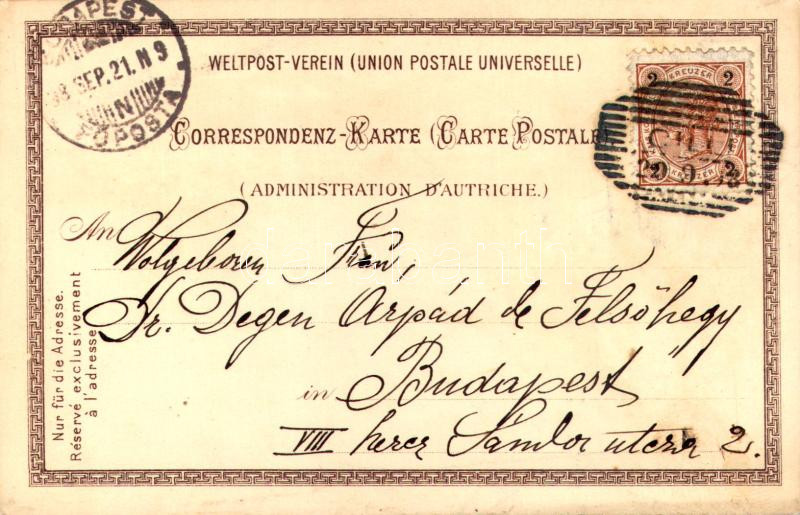 BUDAPEST
98 SEP. 21. N 9
FŐPOSTA
WELTPOST-VEREIN (UNION POSTALE UNIVERSELLE)
2 KREUZER 2
CORRESPONDENZ-KARTE (CARTE POSTALE).
2 KREUZER 2
(ADMINISTRATION D'AUTRICHE.)
An Wolgeboren Frau,
Dr. Degen Arpád de Felsőhegy
in Budapest
VIII herez Sándor utcza 2.
Nur für die Adresse.
Réservé exclusivement
à l'adresse